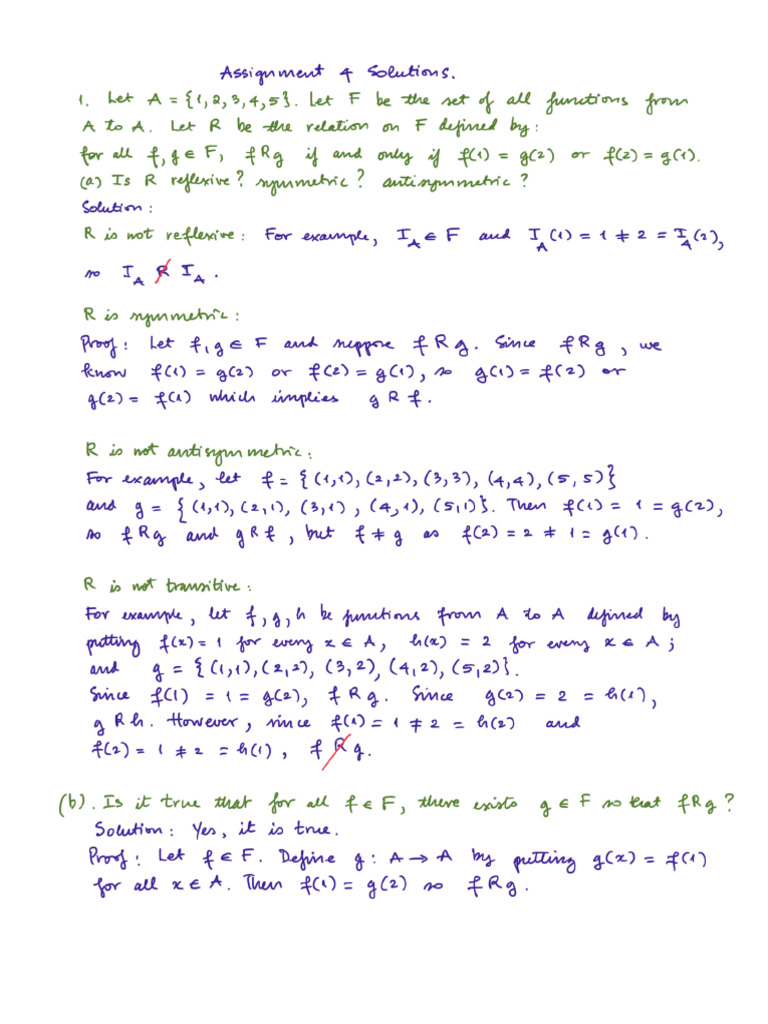 Assignment 4 Solutions.
1. Let A = {1,2,3,4,5}. Let F be the set of all functions from
A to A. Let R be the relation on F defined by:
for all f,g ∈ F, f R g if and only if f(1) = g(2) or f(2) = g(1).
(a) Is R reflexive? symmetric? antisymmetric?
Solution:
R is not reflexive: For example, I_A ∈ F and I_A(1) = 1 ≠ 2 = I_A(2),
so I_A R̸ I_A.
R is symmetric:
Proof: Let f,g ∈ F and suppose f R g. Since f R g, we
know f(1) = g(2) or f(2) = g(1), so g(1) = f(2) or
g(2) = f(1) which implies g R f.
R is not antisymmetric:
For example, let f = {(1,1),(2,2),(3,3),(4,4),(5,5)}
and g = {(1,1),(2,1),(3,1),(4,1),(5,1)}. Then f(1) = 1 = g(2),
so f R g and g R f, but f ≠ g as f(2) = 2 ≠ 1 = g(1).
R is not transitive:
For example, let f,g,h be functions from A to A defined by
putting f(x) = 1 for every x ∈ A, h(x) = 2 for every x ∈ A;
and g = {(1,1),(2,2),(3,2),(4,2),(5,2)}.
Since f(1) = 1 = g(2), f R g. Since g(2) = 2 = h(1),
g R h. However, since f(1) = 1 ≠ 2 = h(2) and
f(2) = 1 ≠ 2 = h(1), f R̸ g.
(b). Is it true that for all f ∈ F, there exists g ∈ F so that f R g?
Solution: Yes, it is true.
Proof: Let f ∈ F. Define g: A → A by putting g(x) = f(1)
for all x ∈ A. Then f(1) = g(2) so f R g.